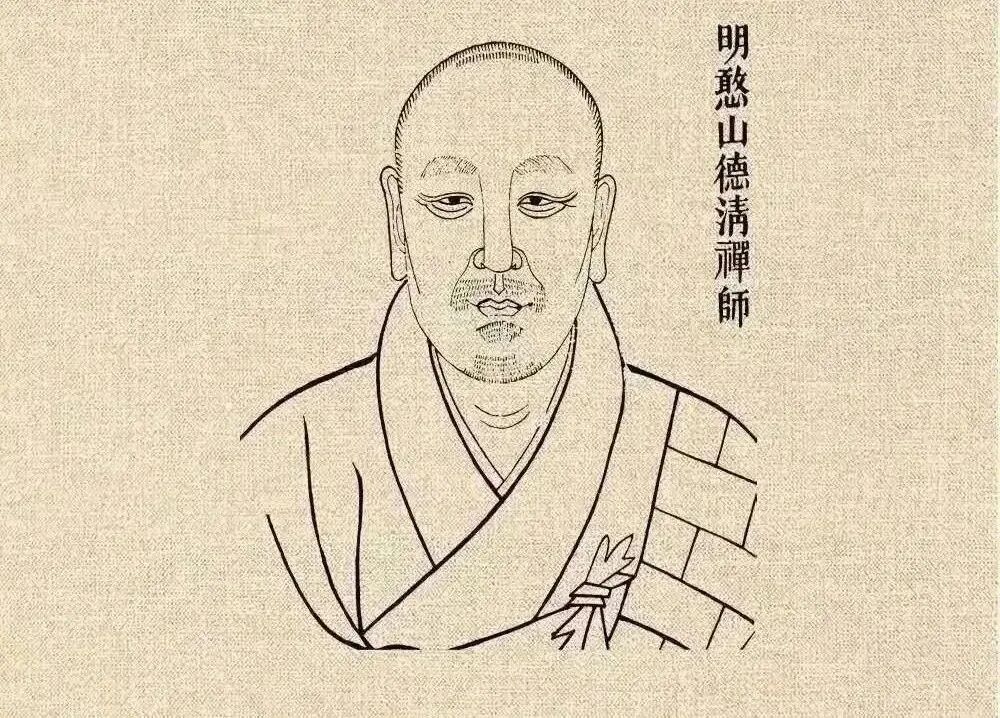 明憨山德清禪師